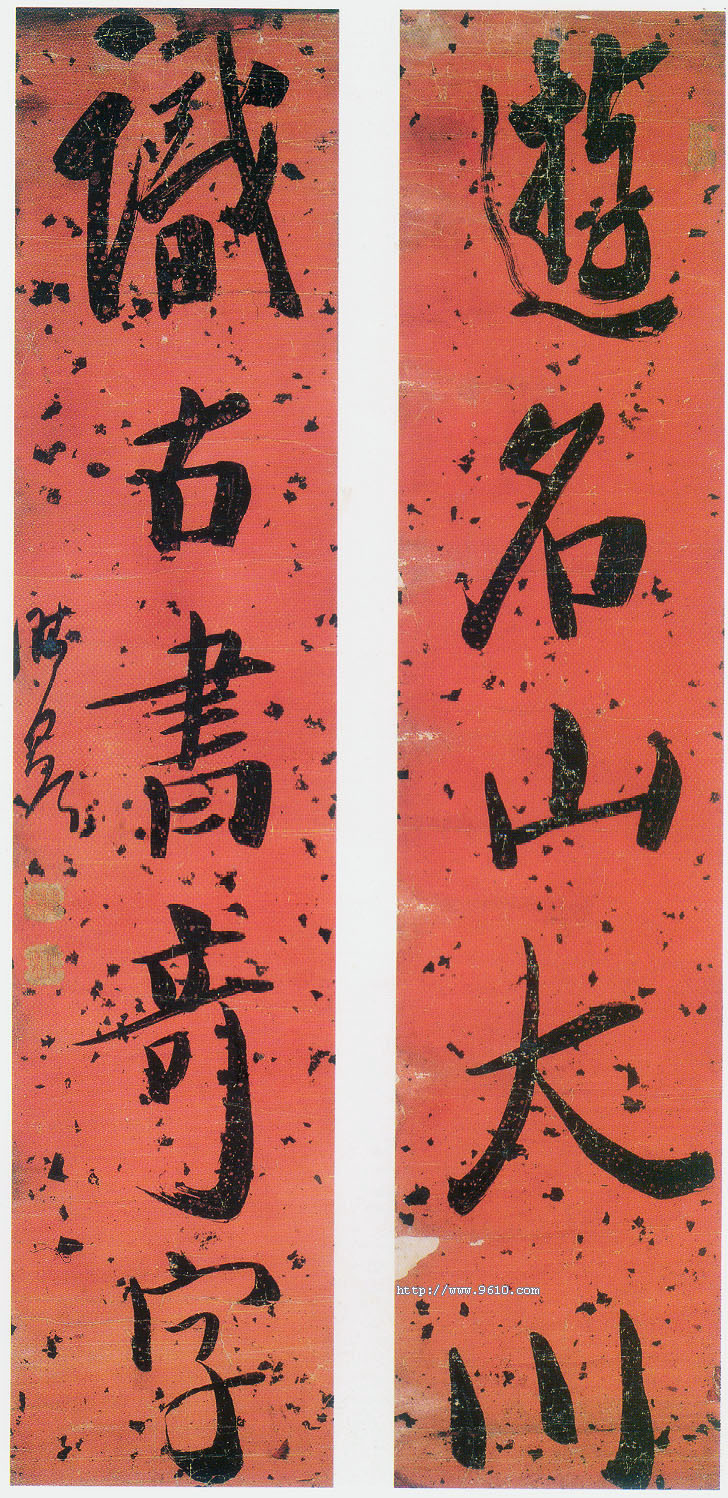 遊名山大川
識古書奇字
陳奕禧
http://www.9610.com